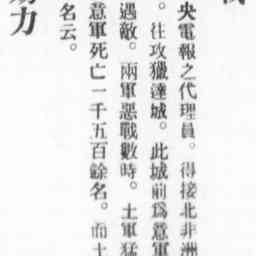 央電報之代理員。得接北非洲
往攻獵達城。此城前爲意軍
遇敵。兩軍惡戰數時。土軍猛
意軍死亡一千五百餘名。而土
名云。
力